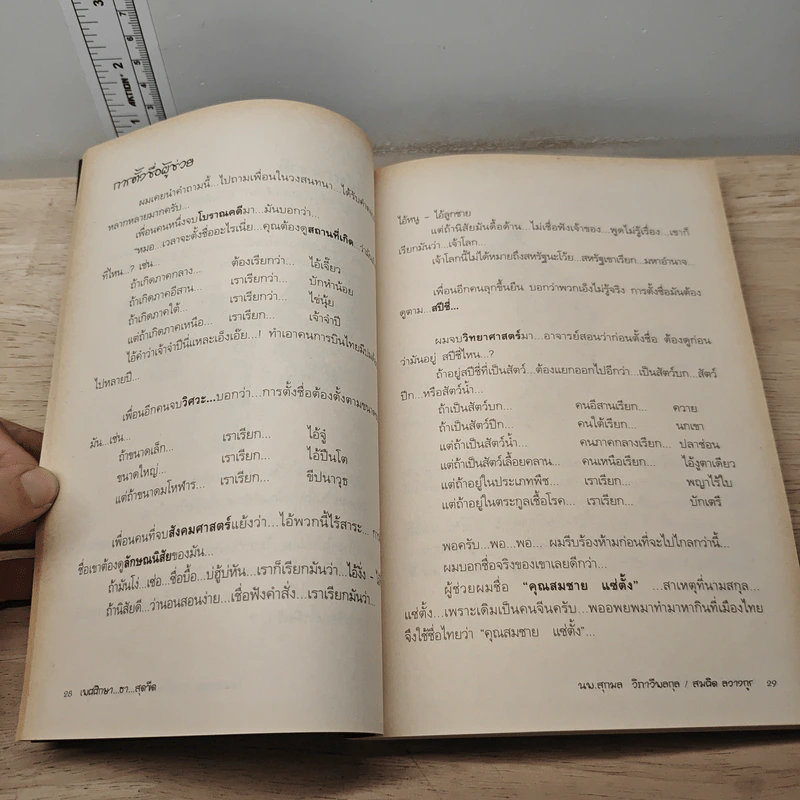 3
2
1
AKTION
การตั้งชื่อผู้ช่วย
ผมเคยนำคำถามนี้...ไปถามเพื่อนในวงสนทนา...ได้รับ
หลากหลายมากครับ...
เพื่อนคนหนึ่งจบโบราณคดีมา...มันบอกว่า...
"หมอ...เวลาจะตั้งชื่ออะไรเนี่ย...คุณต้องดูสถานที่เกิด...
ที่ไหน...? เช่น...
ถ้าเกิดภาคกลาง... ต้องเรียกว่า... ไอ้เจี๊ยว
ถ้าเกิดภาคอีสาน... เราเรียกว่า... บักหำน้อย
ถ้าเกิดภาคใต้... เราเรียกว่า... ไข่นุ้ย
แต่ถ้าเกิดภาคเหนือ... เราเรียก... เจ้าจำปี
ไอ้คำว่าเจ้าจำปีนี่แหละเอ็งเอ๊ย...! ทำเอาคนการบินไทยมึน
ไปหลายปี...
เพื่อนอีกคนจบวิศวะ...บอกว่า...การตั้งชื่อต้องตั้งตามขนาด
มัน...เช่น...
ถ้าขนาดเล็ก... เราเรียก... ไอ้จู๋
ขนาดใหญ่... เราเรียก... ไอ้ปืนโต
แต่ถ้าขนาดมโหฬาร... เราเรียก... ขีปนาวุธ
เพื่อนคนที่จบสังคมศาสตร์แย้งว่า...ไอ้พวกนี้ไร้สาระ...
ชื่อเขาต้องดูลักษณนิสัยของมัน...
ถ้ามันโง่...เซ่อ...ซื่อบื้อ...บ่ฮู้บ่หัน...เราก็เรียกมันว่า...ไอ้งั่ง –
ถ้านิสัยดี...ว่านอนสอนง่าย...เชื่อฟังคำสั่ง...เราเรียกมันว่า...
28 เพศศึกษา...ฮา...สุดขีด
ไอ้หนู – ไอ้ลูกชาย
แต่ถ้านิสัยมันดื้อด้าน...ไม่เชื่อฟังเจ้าของ...พูดไม่รู้เรื่อง...เขาก็
เรียกมันว่า...เจ้าโลก...
เจ้าโลกนี้ไม่ได้หมายถึงสหรัฐนะโว้ย...สหรัฐเขาเรียก...มหาอำนาจ...
เพื่อนอีกคนลุกขึ้นยืน บอกว่าพวกเอ็งไม่รู้จริง การตั้งชื่อมันต้อง
ดูตาม...สปีชี่...
ผมจบวิทยาศาสตร์มา...อาจารย์สอนว่าก่อนตั้งชื่อ ต้องดูก่อน
ว่ามันอยู่ สปีชี่ไหน...?
ถ้าอยู่สปีชี่ที่เป็นสัตว์...ต้องแยกออกไปอีกว่า...เป็นสัตว์บก...สัตว์
ปีก...หรือสัตว์น้ำ...
ถ้าเป็นสัตว์บก... คนอีสานเรียก... ควาย
ถ้าเป็นสัตว์ปีก... คนใต้เรียก... นกเขา
แต่ถ้าเป็นสัตว์น้ำ... คนภาคกลางเรียก... ปลาช่อน
แต่ถ้าเป็นสัตว์เลื้อยคลาน... คนเหนือเรียก... ไอ้งูตาเดียว
แต่ถ้าอยู่ในประเภทพืช... เราเรียก... พญาไร้ใบ
แต่ถ้าอยู่ในตระกูลเชื้อโรค... เราเรียก... บักเตรี
พอครับ...พอ...พอ... ผมรีบร้องห้ามก่อนที่จะไปไกลกว่านี้...
ผมบอกชื่อจริงของเขาเลยดีกว่า...
ผู้ช่วยผมชื่อ "คุณสมชาย แซ่ตั้ง" ...สาเหตุที่นามสกุล...
แซ่ตั้ง...เพราะเดิมเป็นคนจีนครับ...พออพยพมาทำมาหากินที่เมืองไทย
จึงใช้ชื่อไทยว่า "คุณสมชาย แซ่ตั้ง"...
นพ.สุกมล วิภาวีพลกุล / สมฉิด ลวางกูร 29